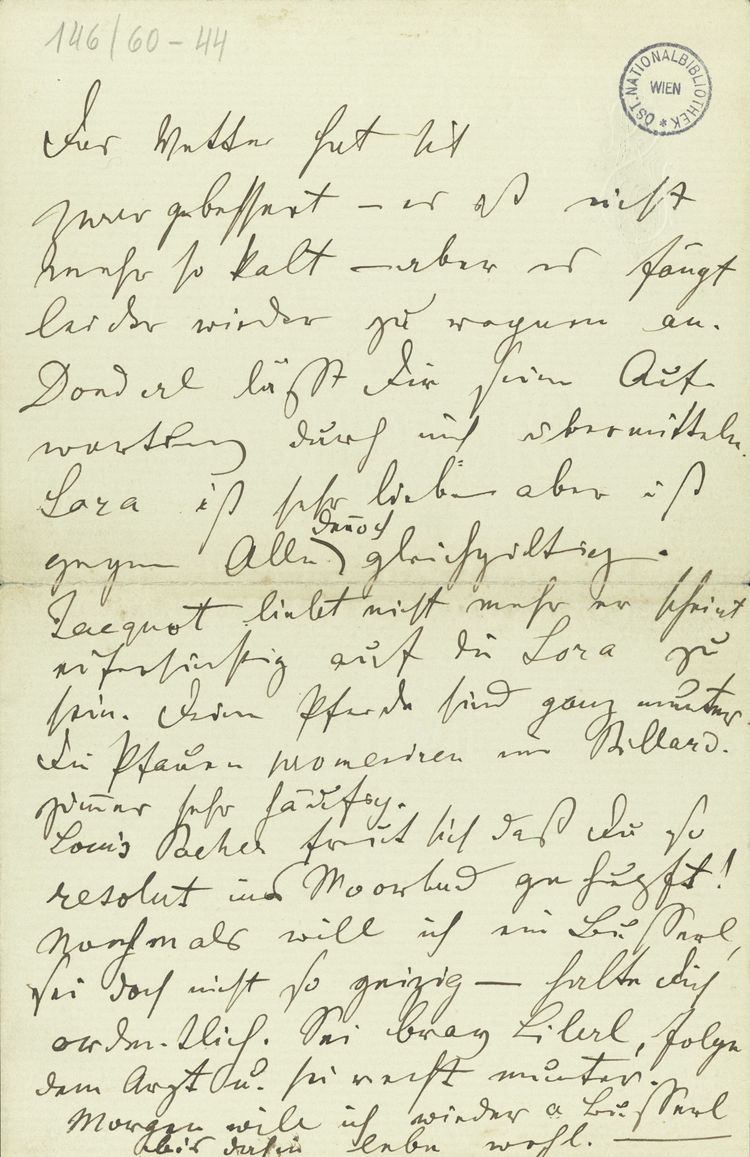 146/60-44
ÖST. NATIONALBIBLIOTHEK * WIEN
Das Wetter hat sich
zwar gebessert – es ist nicht
mehr so kalt – aber es fängt
leider wieder zu regnen an.
lässt Dir seine Auf-
wartung durch mich übermitteln.
Lora ist sehr lieb aber ist
dennoch
gegen Alle gleichgiltig.
Jacquott liebt nicht mehr er scheint
eifersüchtig auf die Lora zu
sein. Deine Pferde sind ganz munter.
Die Pfauen promeniren im Billard-
zimmer sehr häufig.
Louis freut sich daß Du so
resolut ins Moorbad gehupft!
Nochmals will ich ein Busserl,
sei doch nicht so geizig – halte Dich
ordentlich. Sei brav Lilerl, folge
dem Arzt u. sei recht munter.
Morgen will ich wieder a Busserl
bis dahin lebe wohl. –